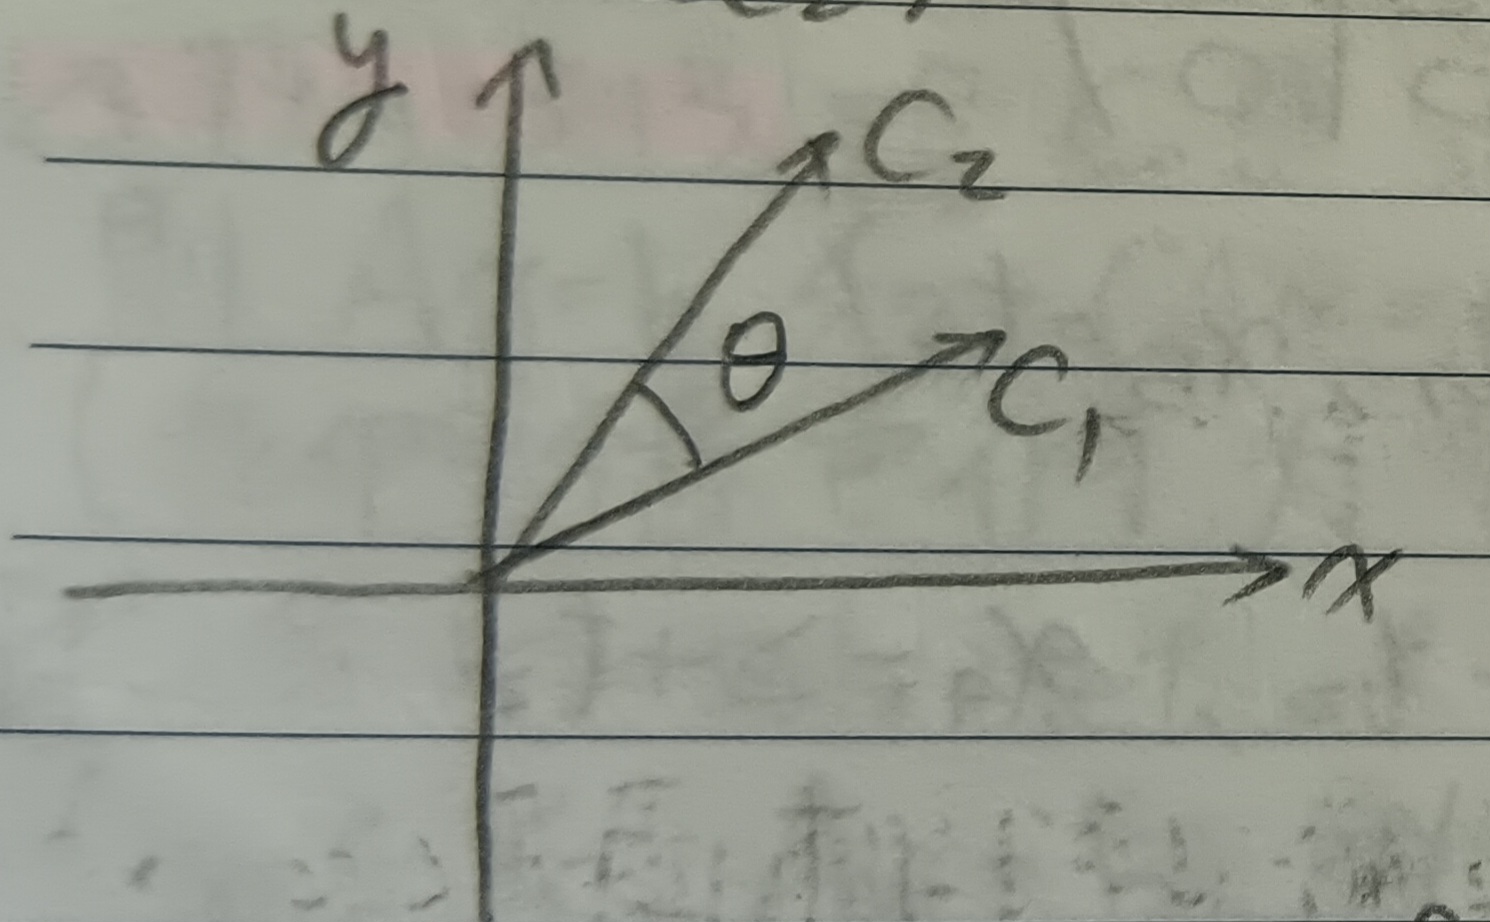 y
C₂
θ
C₁
x